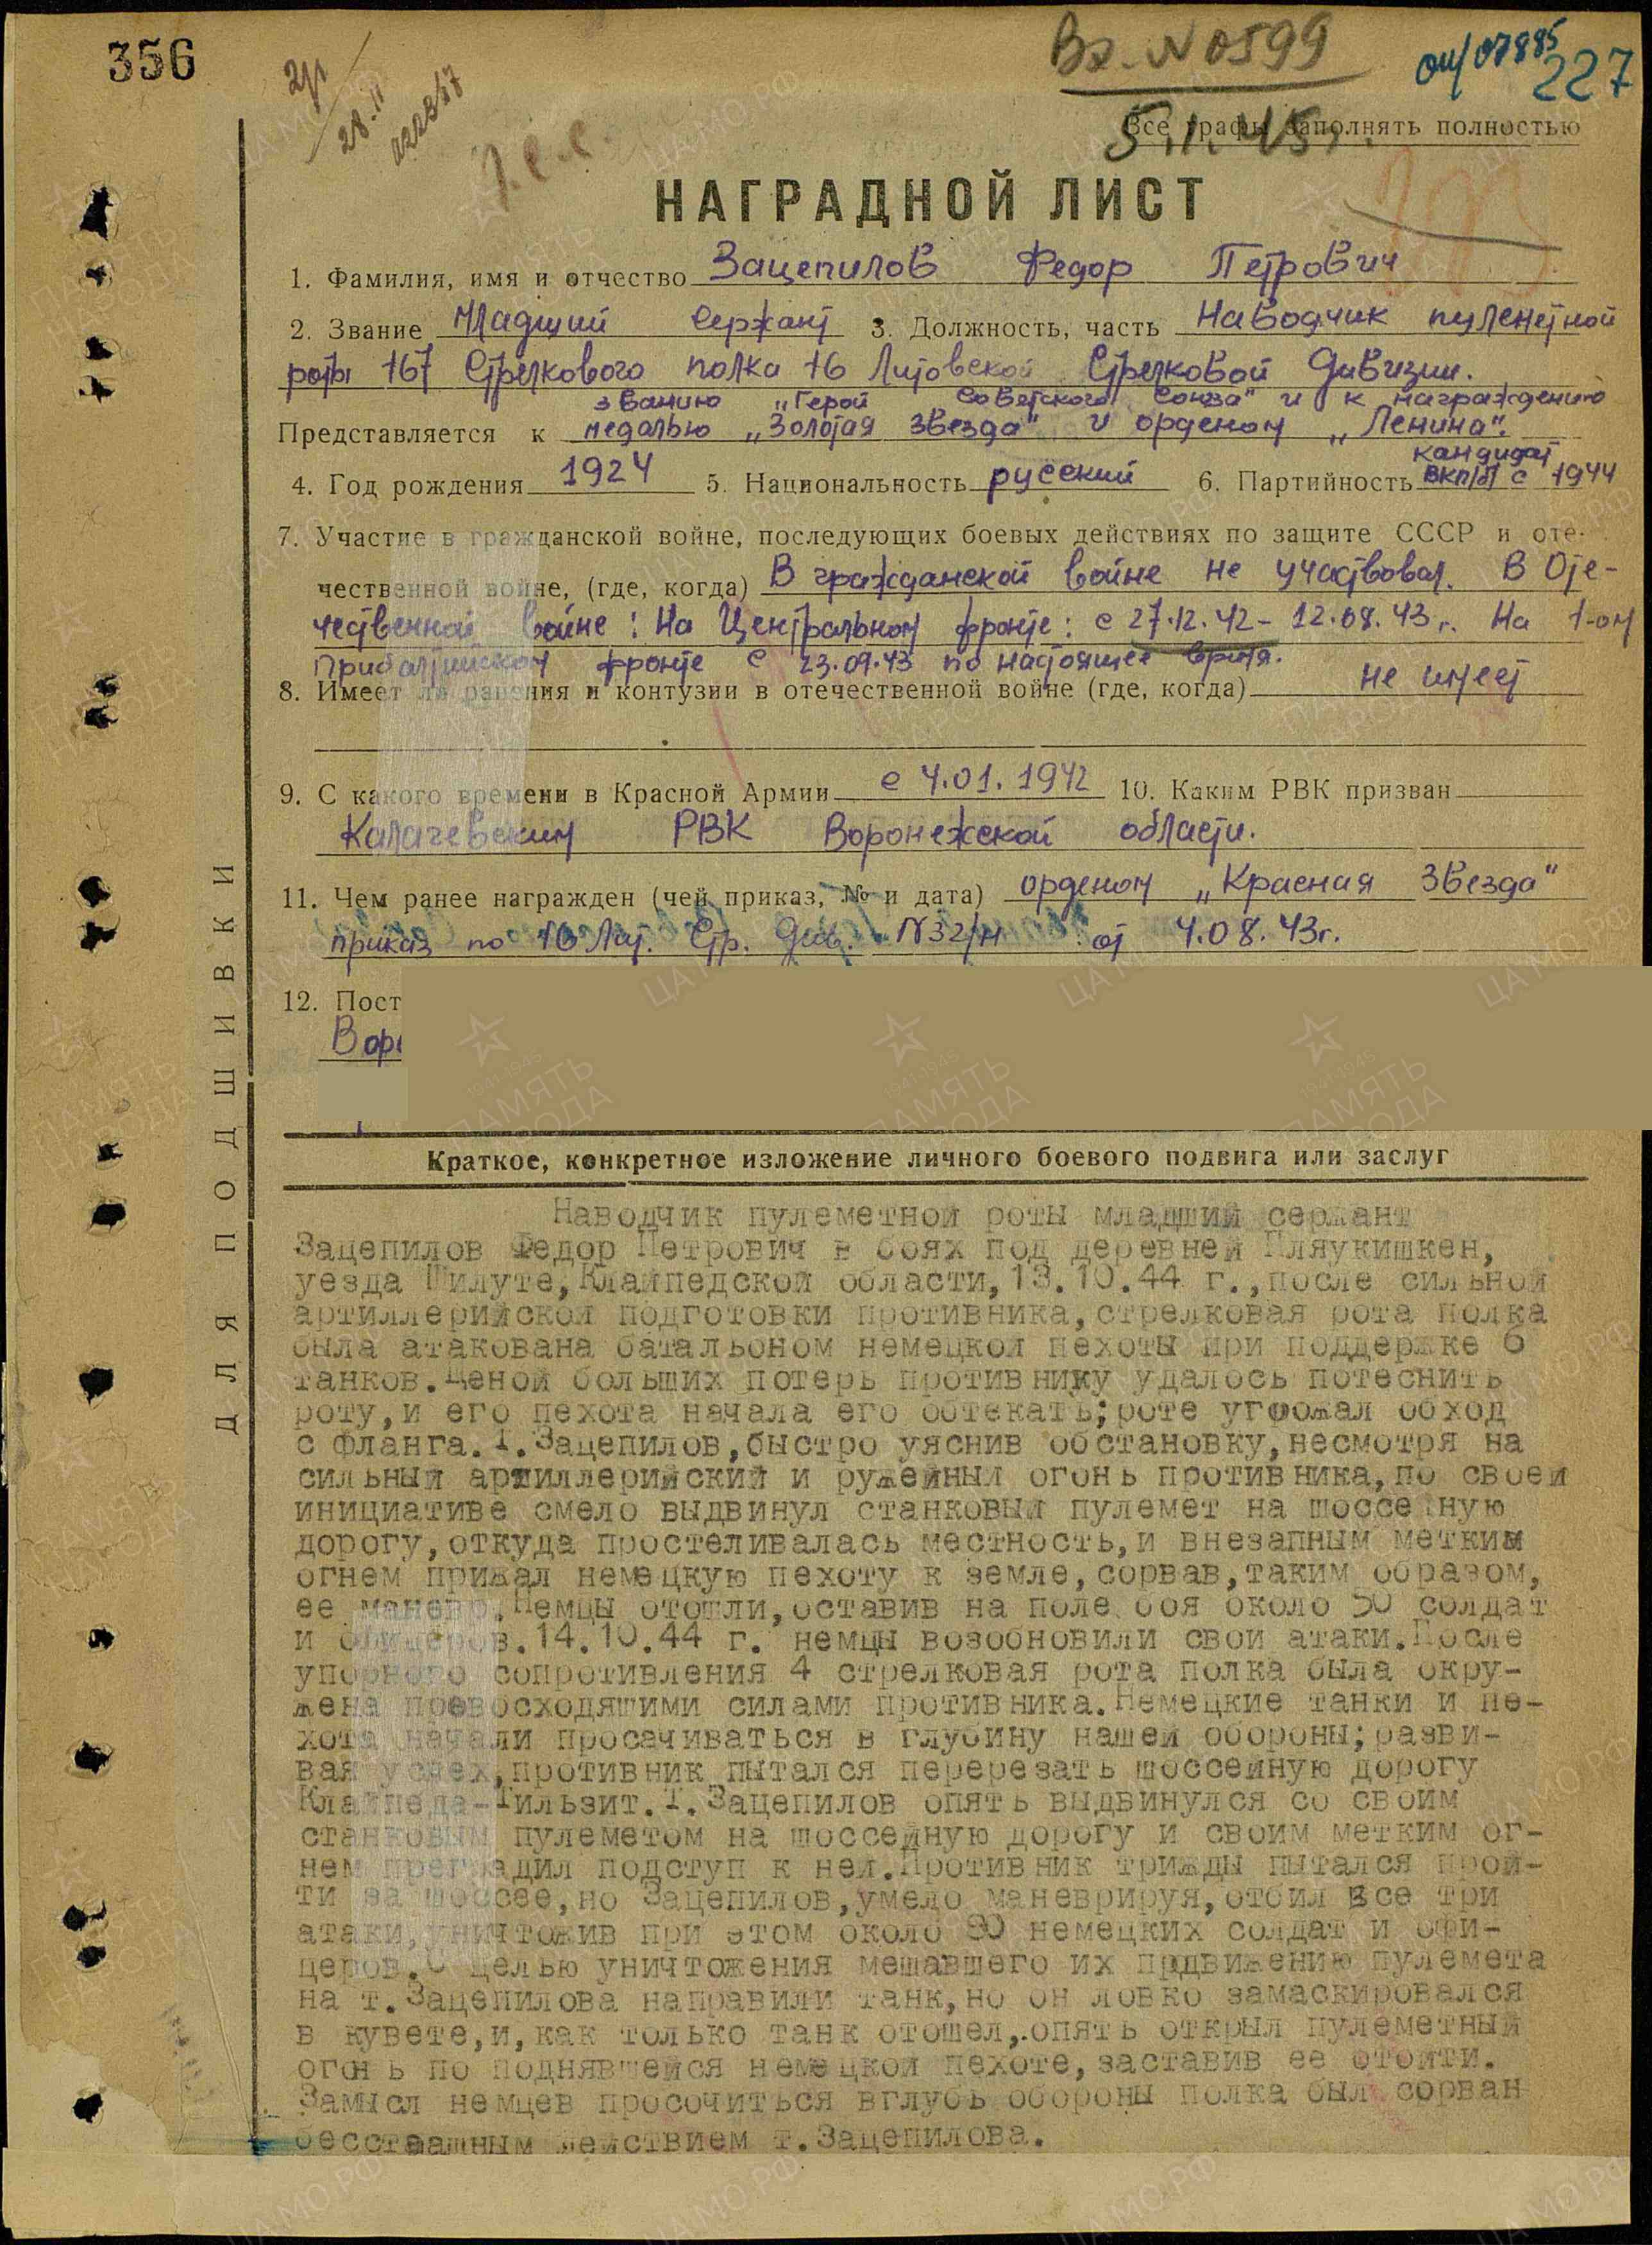 356
Вх. N 0599
5.1.45г.
227
Все графы заполнять полностью
НАГРАДНОЙ ЛИСТ
1. Фамилия, имя и отчество Зацепилов Федор Петрович
2. Звание Младший Сержант 3. Должность, часть Наводчик пулеметной
роты 167 Стрелкового полка 16 Литовской Стрелковой Дивизии.
званию „Герой Советского Союза" и к награждению
Представляется к медалью „Золотая Звезда" и орденом „Ленина".
кандидат
4. Год рождения 1924 5. Национальность русский 6. Партийность ВКП/б/ с 1944
7. Участие в гражданской войне, последующих боевых действиях по защите СССР и оте-
чественной войне, (где, когда) В гражданской войне не участвовал. В Оте-
чественной войне: На Центральном фронте: с 27.12.42 – 12.08.43 г. На 1-ом
Прибалтийском фронте с 23.09.43 по настоящее время.
8. Имеет ли ранения и контузии в отечественной войне (где, когда) не имеет
9. С какого времени в Красной Армии с 4.01.1942 10. Каким РВК призван
Калачевским РВК Воронежской области.
11. Чем ранее награжден (чей приказ, № и дата) орденом „Красная Звезда"
приказ по 16 Лит. Стр. Див. N32/н от 4.08.43г.
12. Пост
Вор
Краткое, конкретное изложение личного боевого подвига или заслуг
Наводчик пулеметной роты младший сержант
Зацепилов Федор Петрович в боях под деревней Пляукишкен,
уезда Шилуте, Клайпедской области, 13.10.44 г., после сильной
артиллерийской подготовки противника, стрелковая рота полка
была атакована батальоном немецкой пехоты при поддержке 6
танков. Ценой больших потерь противнику удалось потеснить
роту, и его пехота начала его обтекать; роте угрожал обход
с фланга. Т. Зацепилов, быстро уяснив обстановку, несмотря на
сильный артиллерийский и ружейный огонь противника, по своей
инициативе смело выдвинул станковый пулемет на шоссейную
дорогу, откуда простеливалась местность, и внезапным метким
огнем прижал немецкую пехоту к земле, сорвав, таким образом,
ее маневр. Немцы отошли, оставив на поле боя около 50 солдат
и офицеров. 14.10.44 г. немцы возобновили свои атаки. После
упорного сопротивления 4 стрелковая рота полка была окру-
жена превосходящими силами противника. Немецкие танки и пе-
хота начали просачиваться в глубину нашей обороны; разви-
вая успех, противник пытался перерезать шоссейную дорогу
Клайпеда-Тильзит. Т. Зацепилов опять выдвинулся со своим
станковым пулеметом на шоссейную дорогу и своим метким ог-
нем преградил подступ к ней. Противник трижды пытался прой-
ти за шоссее, но Зацепилов, умело маневрируя, отбил все три
атаки, уничтожив при этом около 90 немецких солдат и офи-
церов. С целью уничтожения мешавшего их прдвижению пулемета
на т. Зацепилова направили танк, но он ловко замаскировался
в кувете, и, как только танк отошел, опять открыл пулеметный
огонь по поднявшейся немецкой пехоте, заставив ее отойти.
Замысл немцев просочиться вглубь обороны полка был сорван
бесстрашным действием т. Зацепилова.
ДЛЯ ПОДШИВКИ
ЦАМО РФ
ПАМЯТЬ НАРОДА
1941-1945